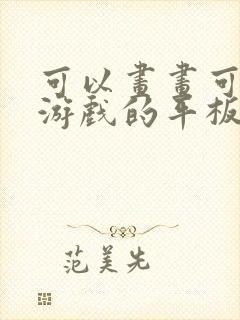 可以畫畫可
游戲的平板
范美先